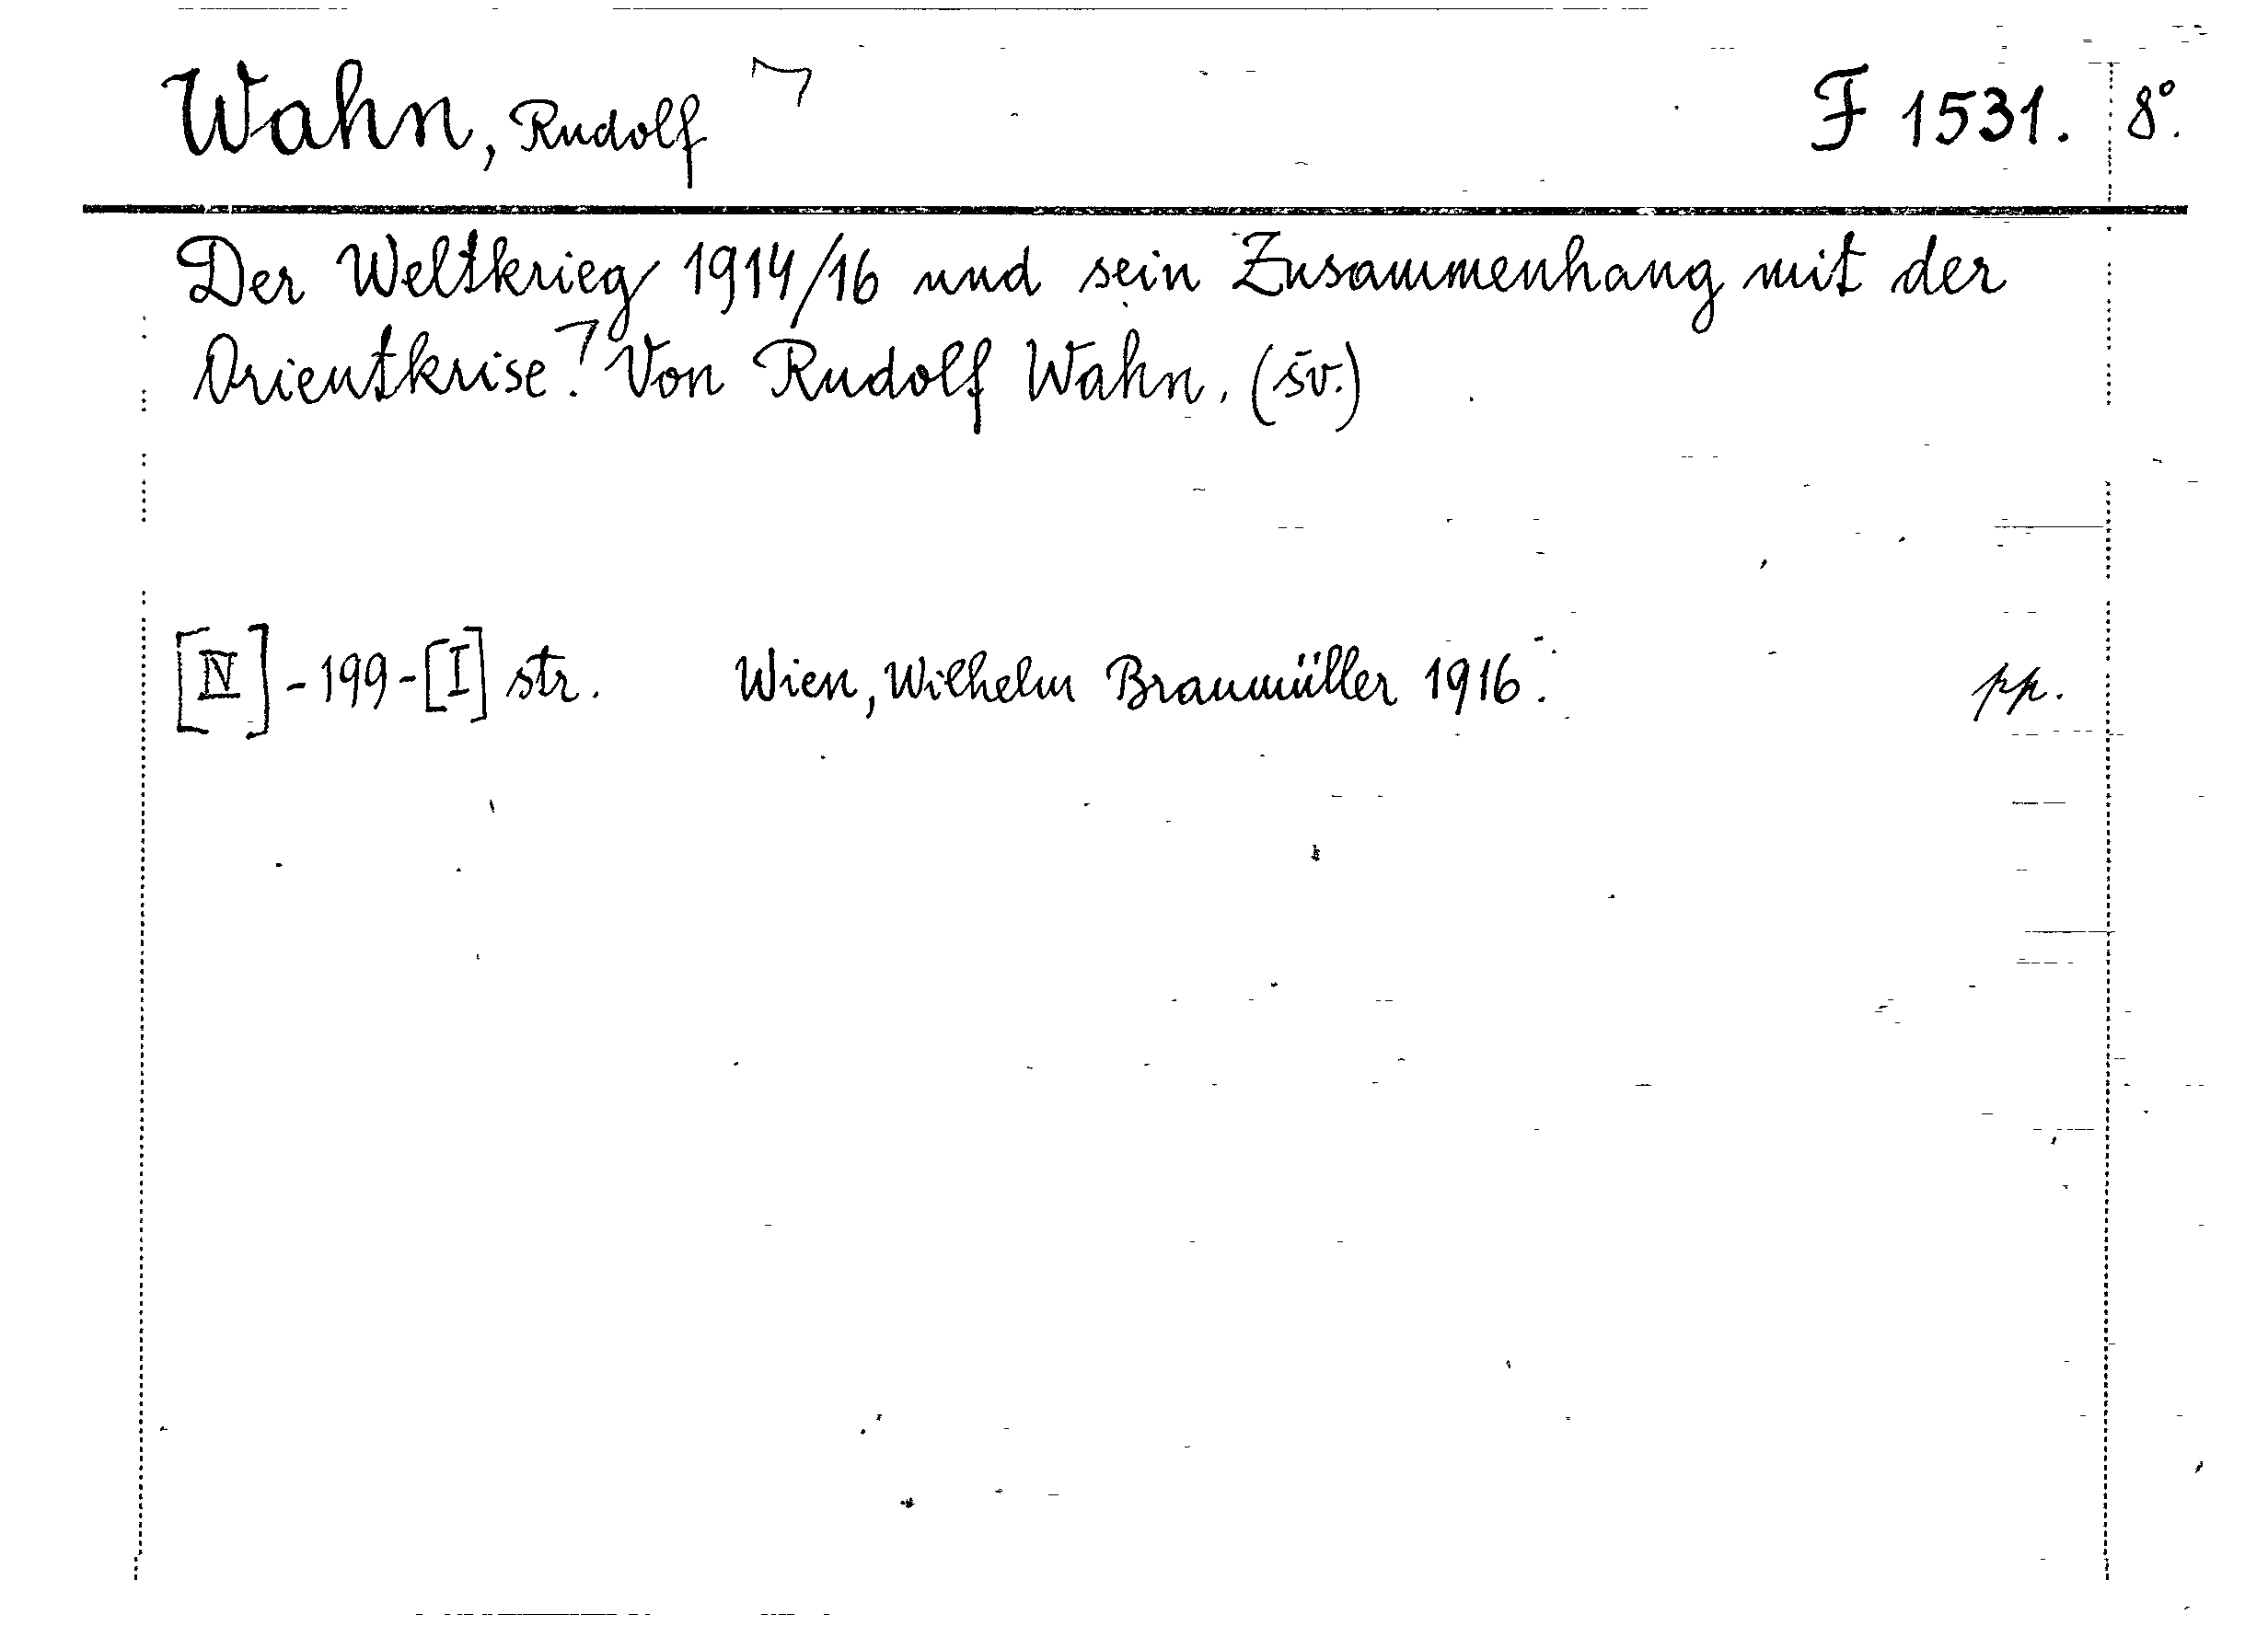 Wahn, Rudolf ¬ F 1531. 8°.
Der Weltkrieg 1914/16 und sein Zusammenhang mit der
Orientkrise.¬ Von Rudolf Wahn. (šv.)
[IV]-199-[I] str. Wien, Wilhelm Braumüller 1916. pp.